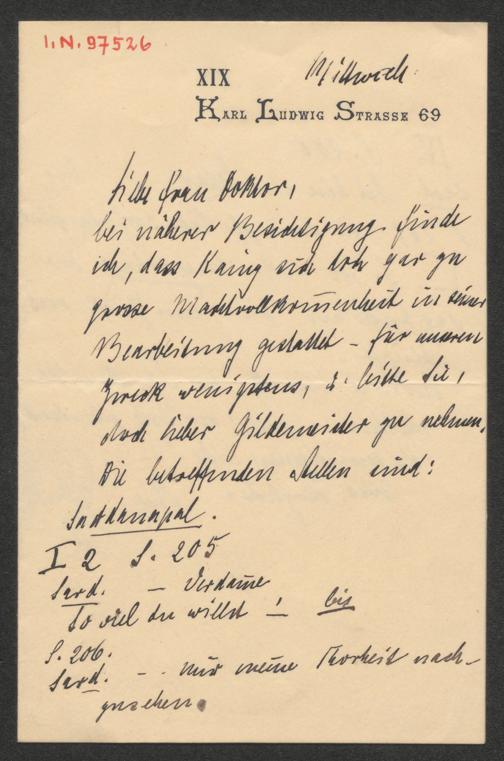 I.N. 97526
Mittwoch.
XIX
KARL LUDWIG STRASSE 69
Liebe Frau Doktor,
bei näherer Besichtigung finde
ich, dass Kainz sich doch gar zu
grosse Machtvollkommenheit in seiner
Bearbeitung gestattet – für unseren
Zweck wenigstens, u. bitte Sie,
doch lieber Gildemeister zu nehmen.
Die betreffenden Stellen sind:
Sardanapal.
I 2 S. 205
Sard. – Verdame
So viel du willst ! bis
S. 206.
Sard. – - mir meine Thorheit nach-
zusehen.